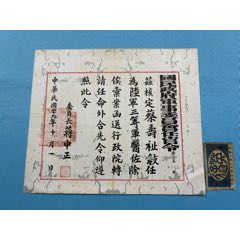 國民政府軍事委員會任職令
茲核定蔡壽祉敘任
為陸軍三等軍醫佐除
俟彙案函送行政院轉
請任命外合先令仰遵
照此令
委員長蔣中正
中華民國廿九年十一月一日